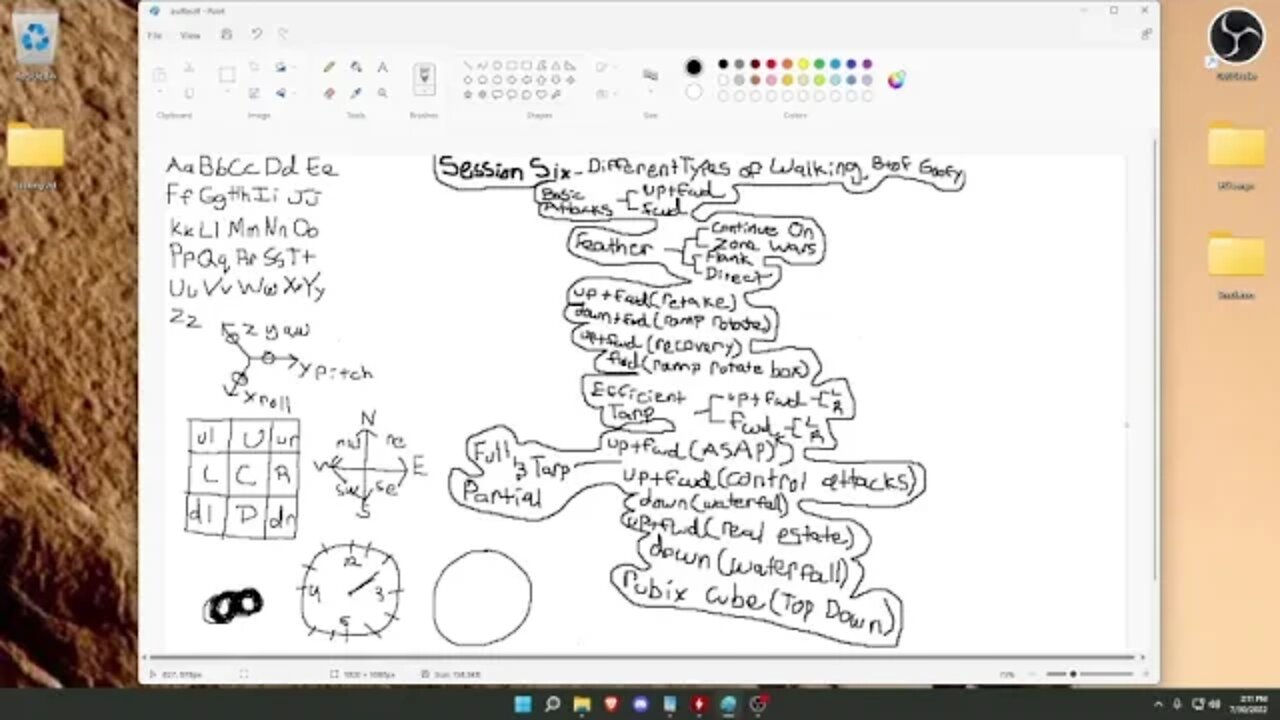 File View
Clipboard
Image
Tools
Brushes
Shapes
Size
Colors
Aa Bb Cc Dd Ee
Ff Gg Hh Ii Jj
Kk Ll Mm Nn Oo
Pp Qq Rr Ss Tt
Uu Vv Ww Xx Yy
Zz
Z yaw
Y pitch
X roll
ul U ur
L C R
dl D dr
N
nw ne
W E
sw se
S
12
9 3
6
Session Six - Different Types of Walking
Basic Attacks
up+fwd
fwd
Feather
Continue On
Zone Wars
Flank
Direct
up+fwd (retake)
down+fwd (ramp rotate)
up+fwd (recovery)
fwd (ramp rotate box)
Efficient Tarp
up+fwd L R
fwd L R
Full & Partial Tarp
up+fwd (ASAP)
up+fwd (control attacks)
down (waterfall)
up+fwd (real estate)
down (waterfall)
rubix cube (Top Down)
2:11 PM
7/30/2022